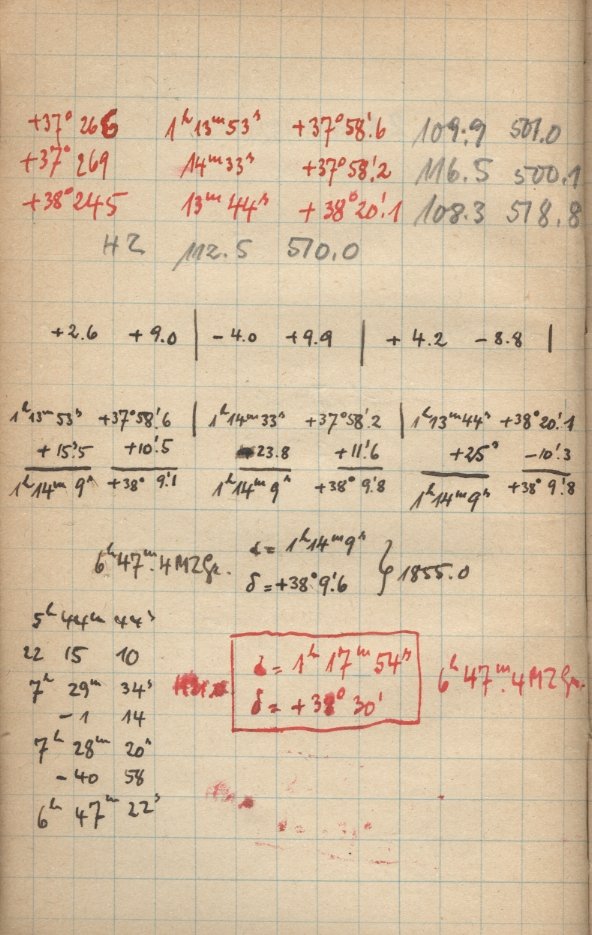 +37° 266 1ʰ13ᵐ53ˢ +37°58!6 109.9 501.0
+37° 269 14ᵐ33ˢ +37°58!2 116.5 500.1
+38°245 13ᵐ44ˢ +38°20!1 108.3 518.8
HZ 112.5 510.0
+2.6 +9.0 | -4.0 +9.9 | +4.2 -8.8 |
1ʰ13ᵐ53ˢ +37°58!6 | 1ʰ14ᵐ33ˢ +37°58!2 | 1ʰ13ᵐ44ˢ +38°20!1
+15ˢ.5 +10!5 -23.8 +11!6 +25ˢ -10!3
1ʰ14ᵐ9ˢ +38° 9!1 1ʰ14ᵐ9ˢ +38° 9!8 1ʰ14ᵐ9ˢ +38° 9!8
6ʰ47ᵐ.4 MZGr. α = 1ʰ14ᵐ9ˢ
δ = +38°9!6 } 1855.0
5ʰ 44ᵐ 44ˢ
22 15 10
7ʰ 29ᵐ 34ˢ
-1 14
7ʰ 28ᵐ 20ˢ
-40 58
6ʰ 47ᵐ 22ˢ
α = 1ʰ 17ᵐ 54ˢ 6ʰ47ᵐ.4 MZGr.
δ = +38° 30'